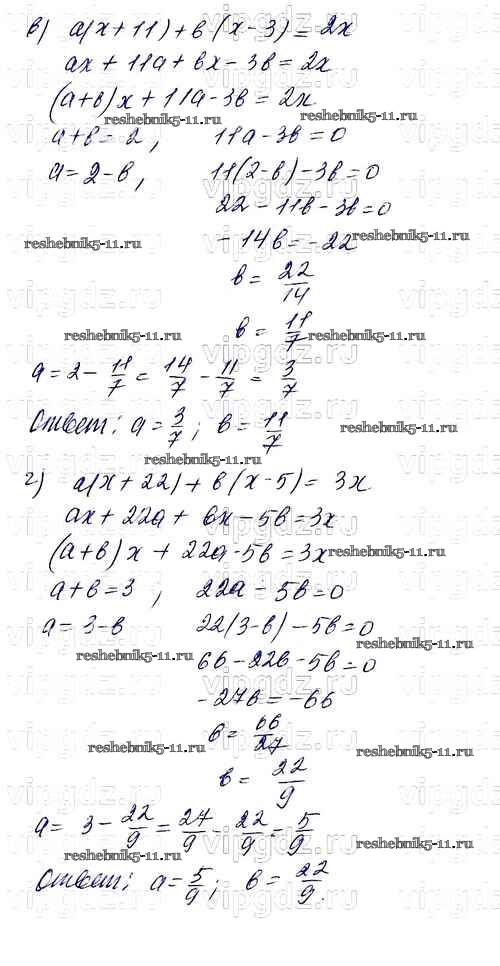 в) a(x+11)+в(x-3)=2x
ax+11a+вx-3в=2x
(a+в)x+11a-3в=2x
reshebnik5-11.ru
a+в=2, 11a-3в=0
a=2-в, 11(2-в)-3в=0
22-11в-3в=0
reshebnik5-11.ru -14в=-22 reshebnik5-11.ru
в=22/14
reshebnik5-11.ru в=11/7 reshebnik5-11.ru
a=2-11/7=14/7-11/7=3/7
Ответ: a=3/7; в=11/7 reshebnik5-11.ru
reshebnik5-11.ru
г) a(x+22)+в(x-5)=3x
ax+22a+вx-5в=3x
(a+в)x+22a-5в=3x reshebnik5-11.ru
a+в=3, 22a-5в=0
a=3-в 22(3-в)-5в=0
reshebnik5-11.ru 66-22в-5в=0
-27в=-66
reshebnik5-11.ru в=66/27 reshebnik5-11.ru
в=22/9
a=3-22/9=27/9-22/9=5/9
reshebnik5-11.ru reshebnik5-11.ru
Ответ: a=5/9; в=22/9.
vipgdz.ru